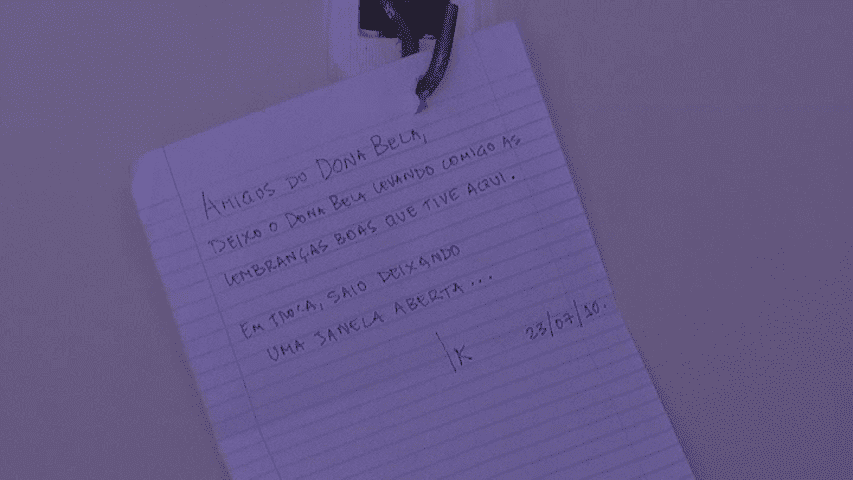 AMIGOS DO DONA BELA,
DEIXO O DONA BELA LEVANDO COMIGO AS
LEMBRANÇAS BOAS QUE TIVE AQUI.
EM TROCA, SAIO DEIXANDO
UMA JANELA ABERTA...
K 23/07/10.